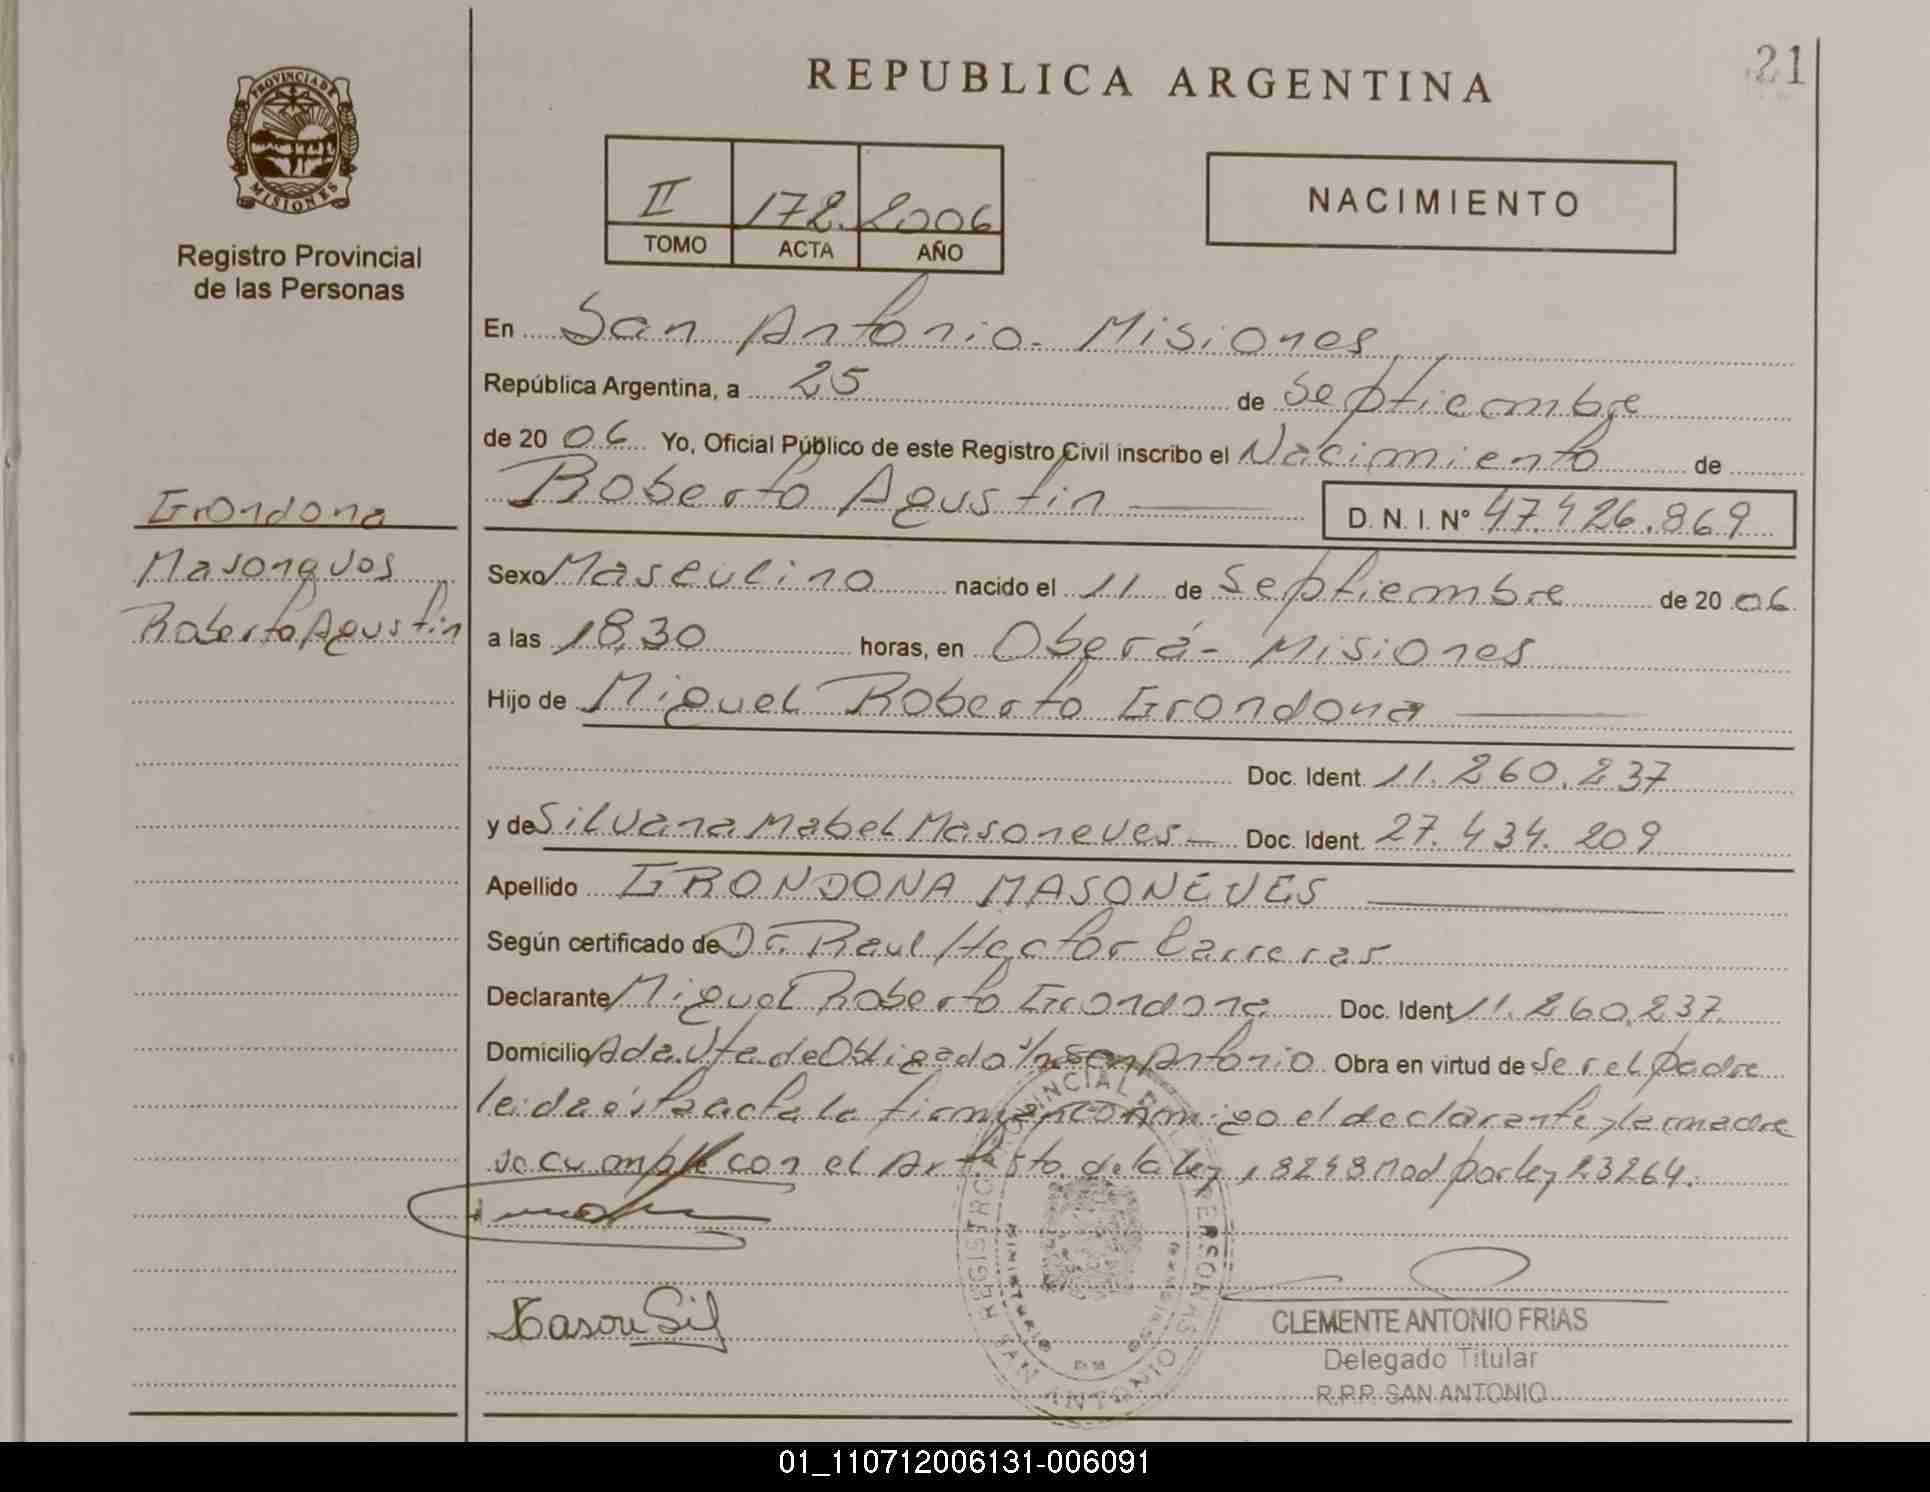 21
REPUBLICA ARGENTINA
PROVINCIA DE MISIONES
Registro Provincial
de las Personas
II 172. 2006
TOMO ACTA AÑO
NACIMIENTO
En San Antonio - Misiones
República Argentina, a 25 de Septiembre
de 20 06 Yo, Oficial Público de este Registro Civil inscribo el Nacimiento de
Roberto Agustin D. N. I. N° 47.426.869
Grondona
Masoneves
Roberto Agustin
Sexo Masculino nacido el 11 de Septiembre de 20 06
a las 18,30 horas, en Oberá - Misiones
Hijo de Miguel Roberto Grondona
Doc. Ident. 11.260.237
y de Silvana Mabel Masoneves Doc. Ident. 27.434.209
Apellido GRONDONA MASONEVES
Según certificado de Dr. Raul Hector Carreras
Declarante Miguel Roberto Grondona Doc. Ident 11.260.237
Domicilio de Obligado s/n San Antonio Obra en virtud de Ser el padre
leida ésta acta la firman conmigo el declarante y la madre
se cumple con el Art 5to. de la ley 18248 Mod por ley 23264.
REGISTRO PROVINCIAL DE LAS PERSONAS
MINISTERIO DE GOBIERNO
SAN ANTONIO
CLEMENTE ANTONIO FRIAS
Delegado Titular
R.P.P. SAN ANTONIO
01_110712006131-006091